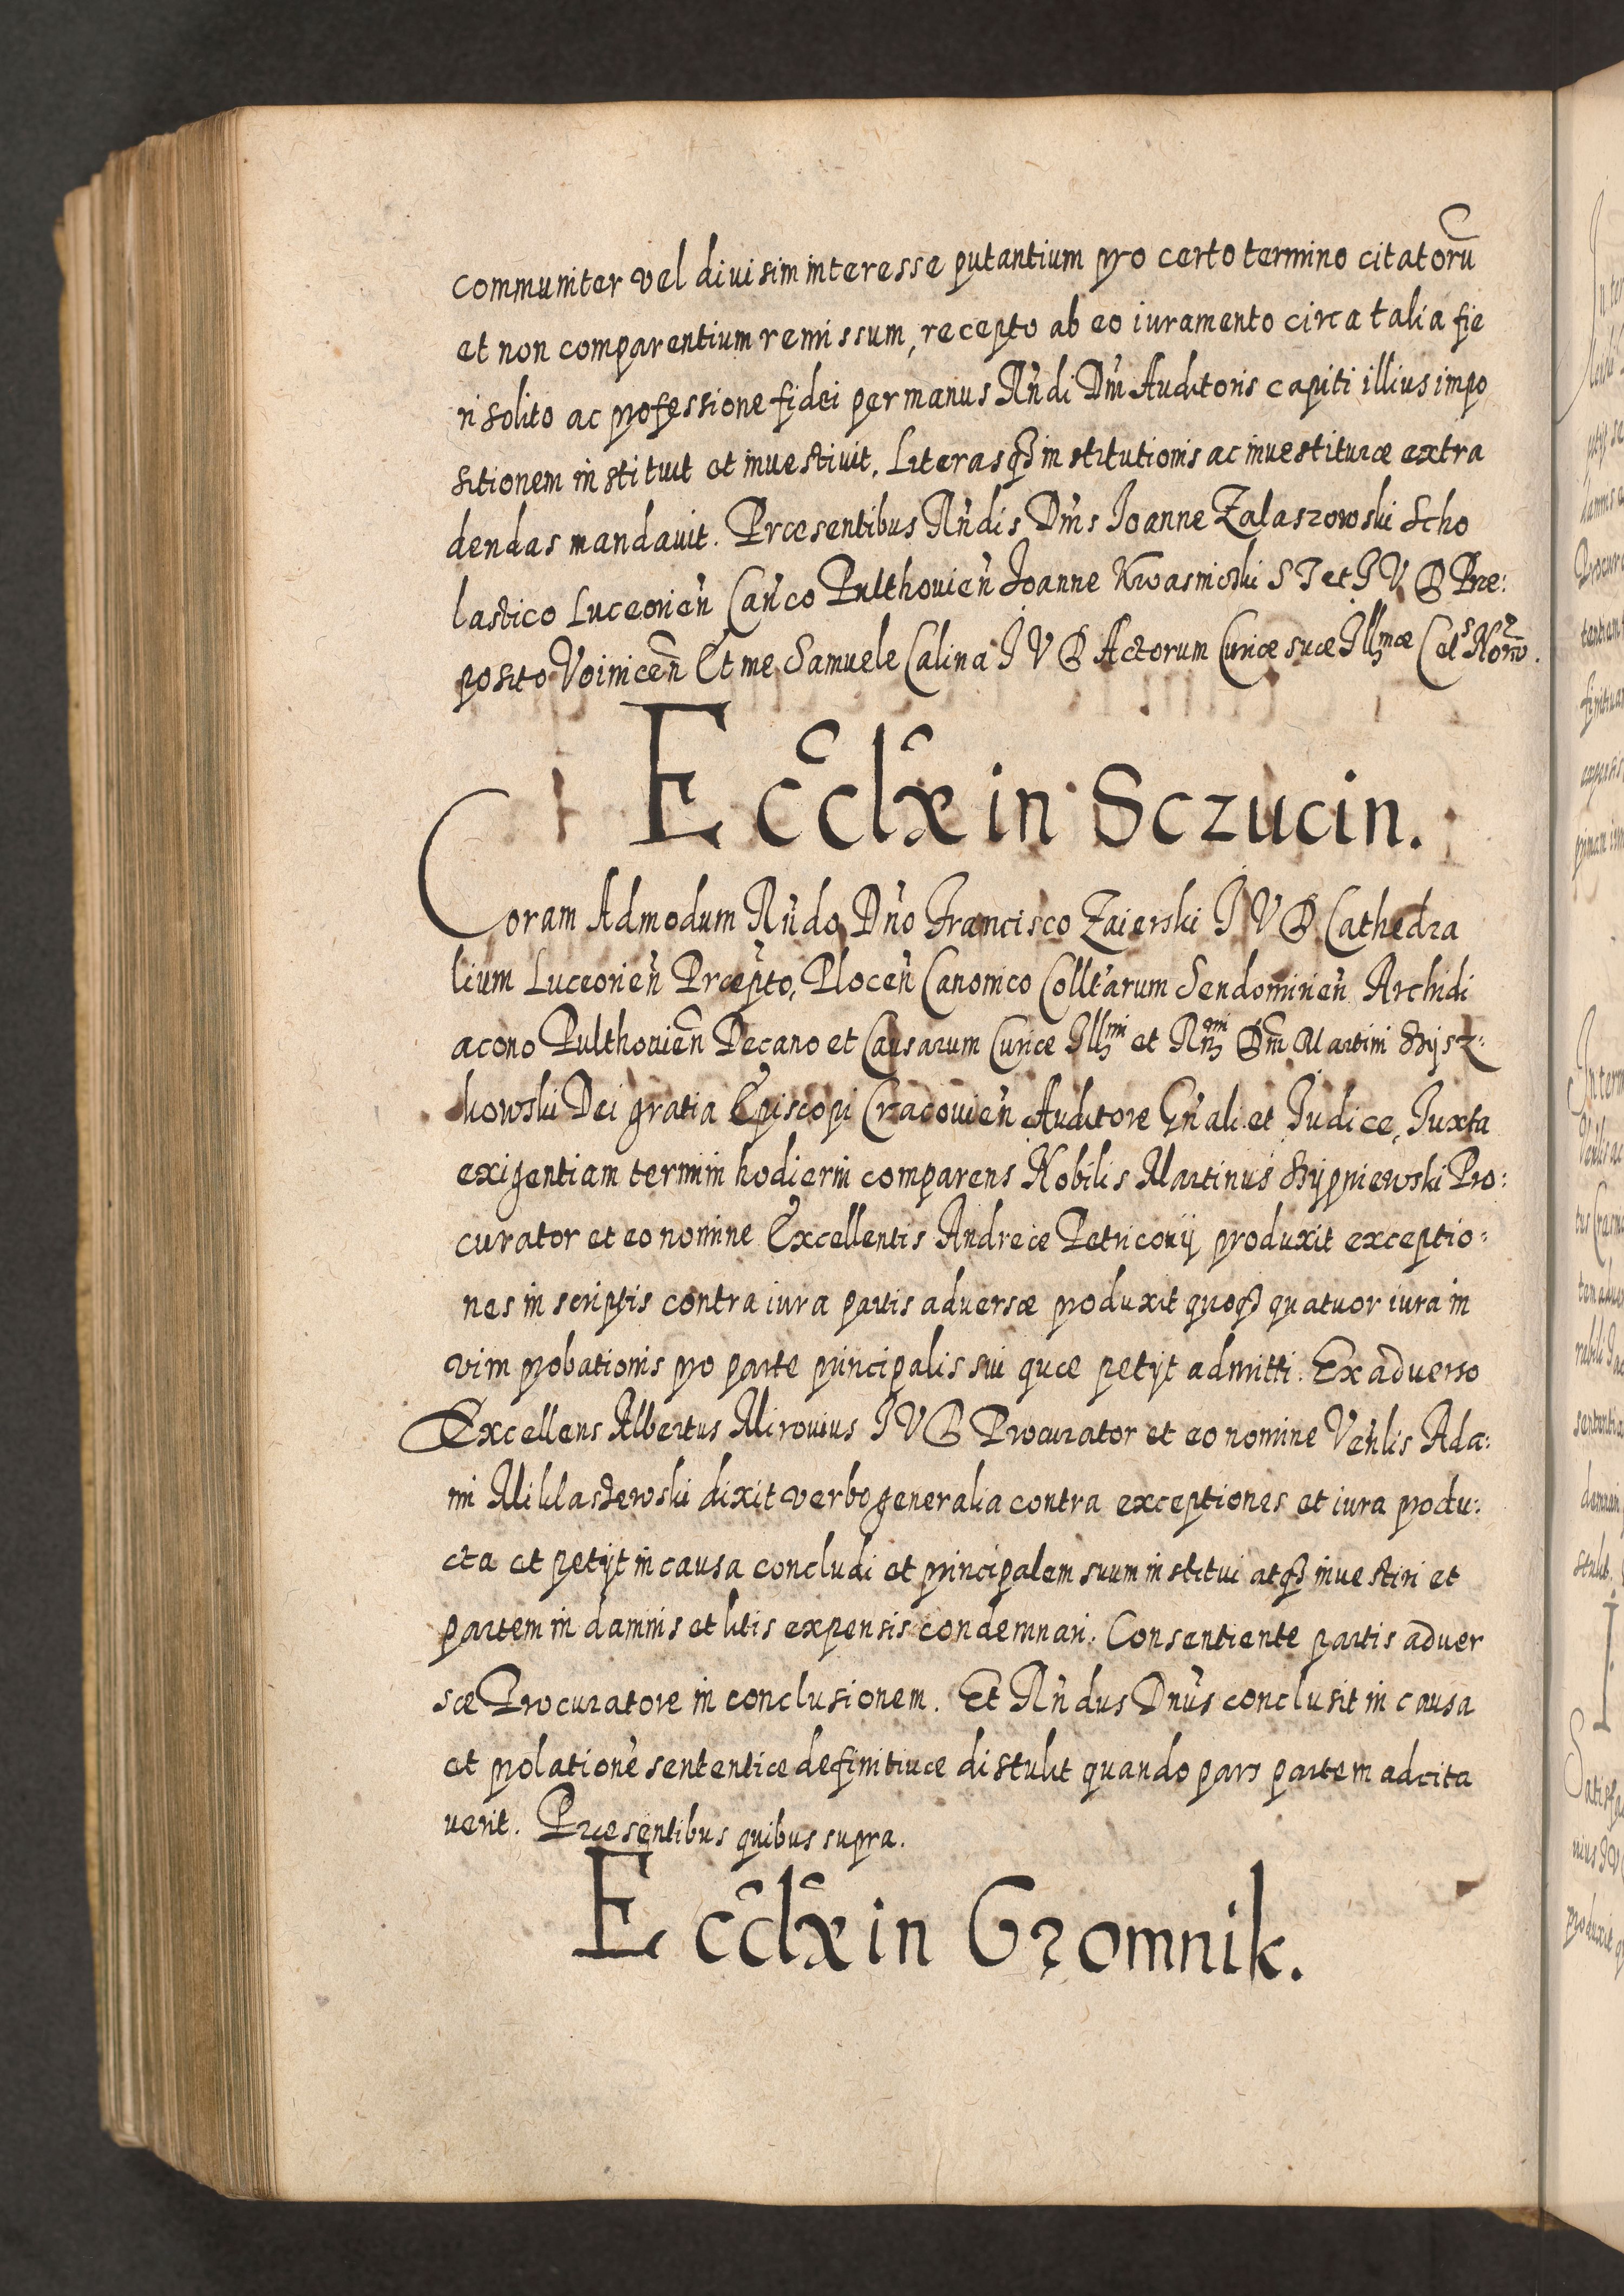 communiter vel diuisim interesse putantium pro certo termino citatorũ
et non comparentium remissum, recepto ab eo iuramento circa talia fie
ri solito ac professione fidei per manus Rñdi Dñi Auditoris capiti illius impo
sitionem instituit et inuestiuit. Literasq3 institutionis ac inuestituræ extra
dendas mandauit. Præsentibus Rñdis Dñis Joanne Zalaszowski Scho
lastico Luceorieñ Cañco Pulthouieñ Joanne Kwasnicski S T et J V D Præ:
posito Voiniceñ Et me Samuele Calina J V D Actorum Curiæ suæ Jllmæ Cels
Ecclæ in Sczucin.
Coram Admodum Rñdo Dño Francisco Zaierski J V D Cathedra
lium Luceorieñ Præpto, Ploceñ Canonico Colltarum Sendomirieñ Archidi
acono Pulthouieñ Decano et Causarum Curiæ Jllmi et Rmi Dñi Martini Szysz-
kowski Dei gratia Episcopi Cracouieñ Auditore Gñali et Judice, Juxta
exigentiam termini hodierni comparens Nobilis Martinus Szypniewski Pro:
curator et eo nomine Excellentis Andreæ Petriconij produxit exceptio-
nes in scriptis contra iura partis aduersæ produxit quoq3 quatuor iura in
vim probationis pro parte principalis sui quæ petijt admitti. Ex aduerso
Excellens Albertus Mirouius J V D Procurator et eo nomine Veñlis Ada-
mi Miklaszewski dixit verbo generalia contra exceptiones et iura produ:
cta et petijt in causa concludi et principalem suum institui atq3 inuestiri et
partem in damnis et litis expensis condemnari. Consentiente partis aduer
sæ Procuratore in conclusionem. Et Rñdus Dñus conclusit in causa
et prolationẽ sententiæ definitiuæ distulit quando pars partem adcita
uerit. Præsentibus quibus supra.
Ecclæ in Gromnik.